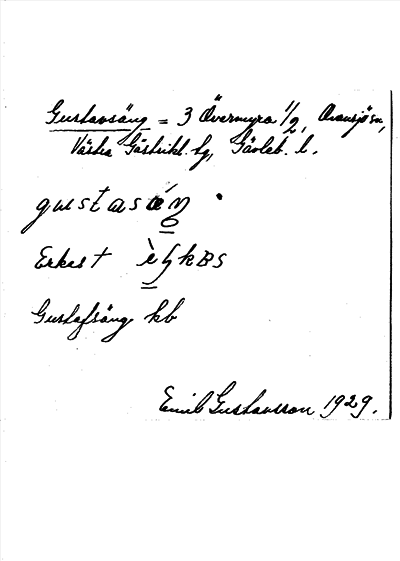 Gustavsäng = 3 Övermyra 1/2, Ovansjö sn,
Västra Gästrikl. tg, Gävleb. l.
gustasäŋ
Erkast
Gustafsäng kb
Emil Gustavsson 1929.